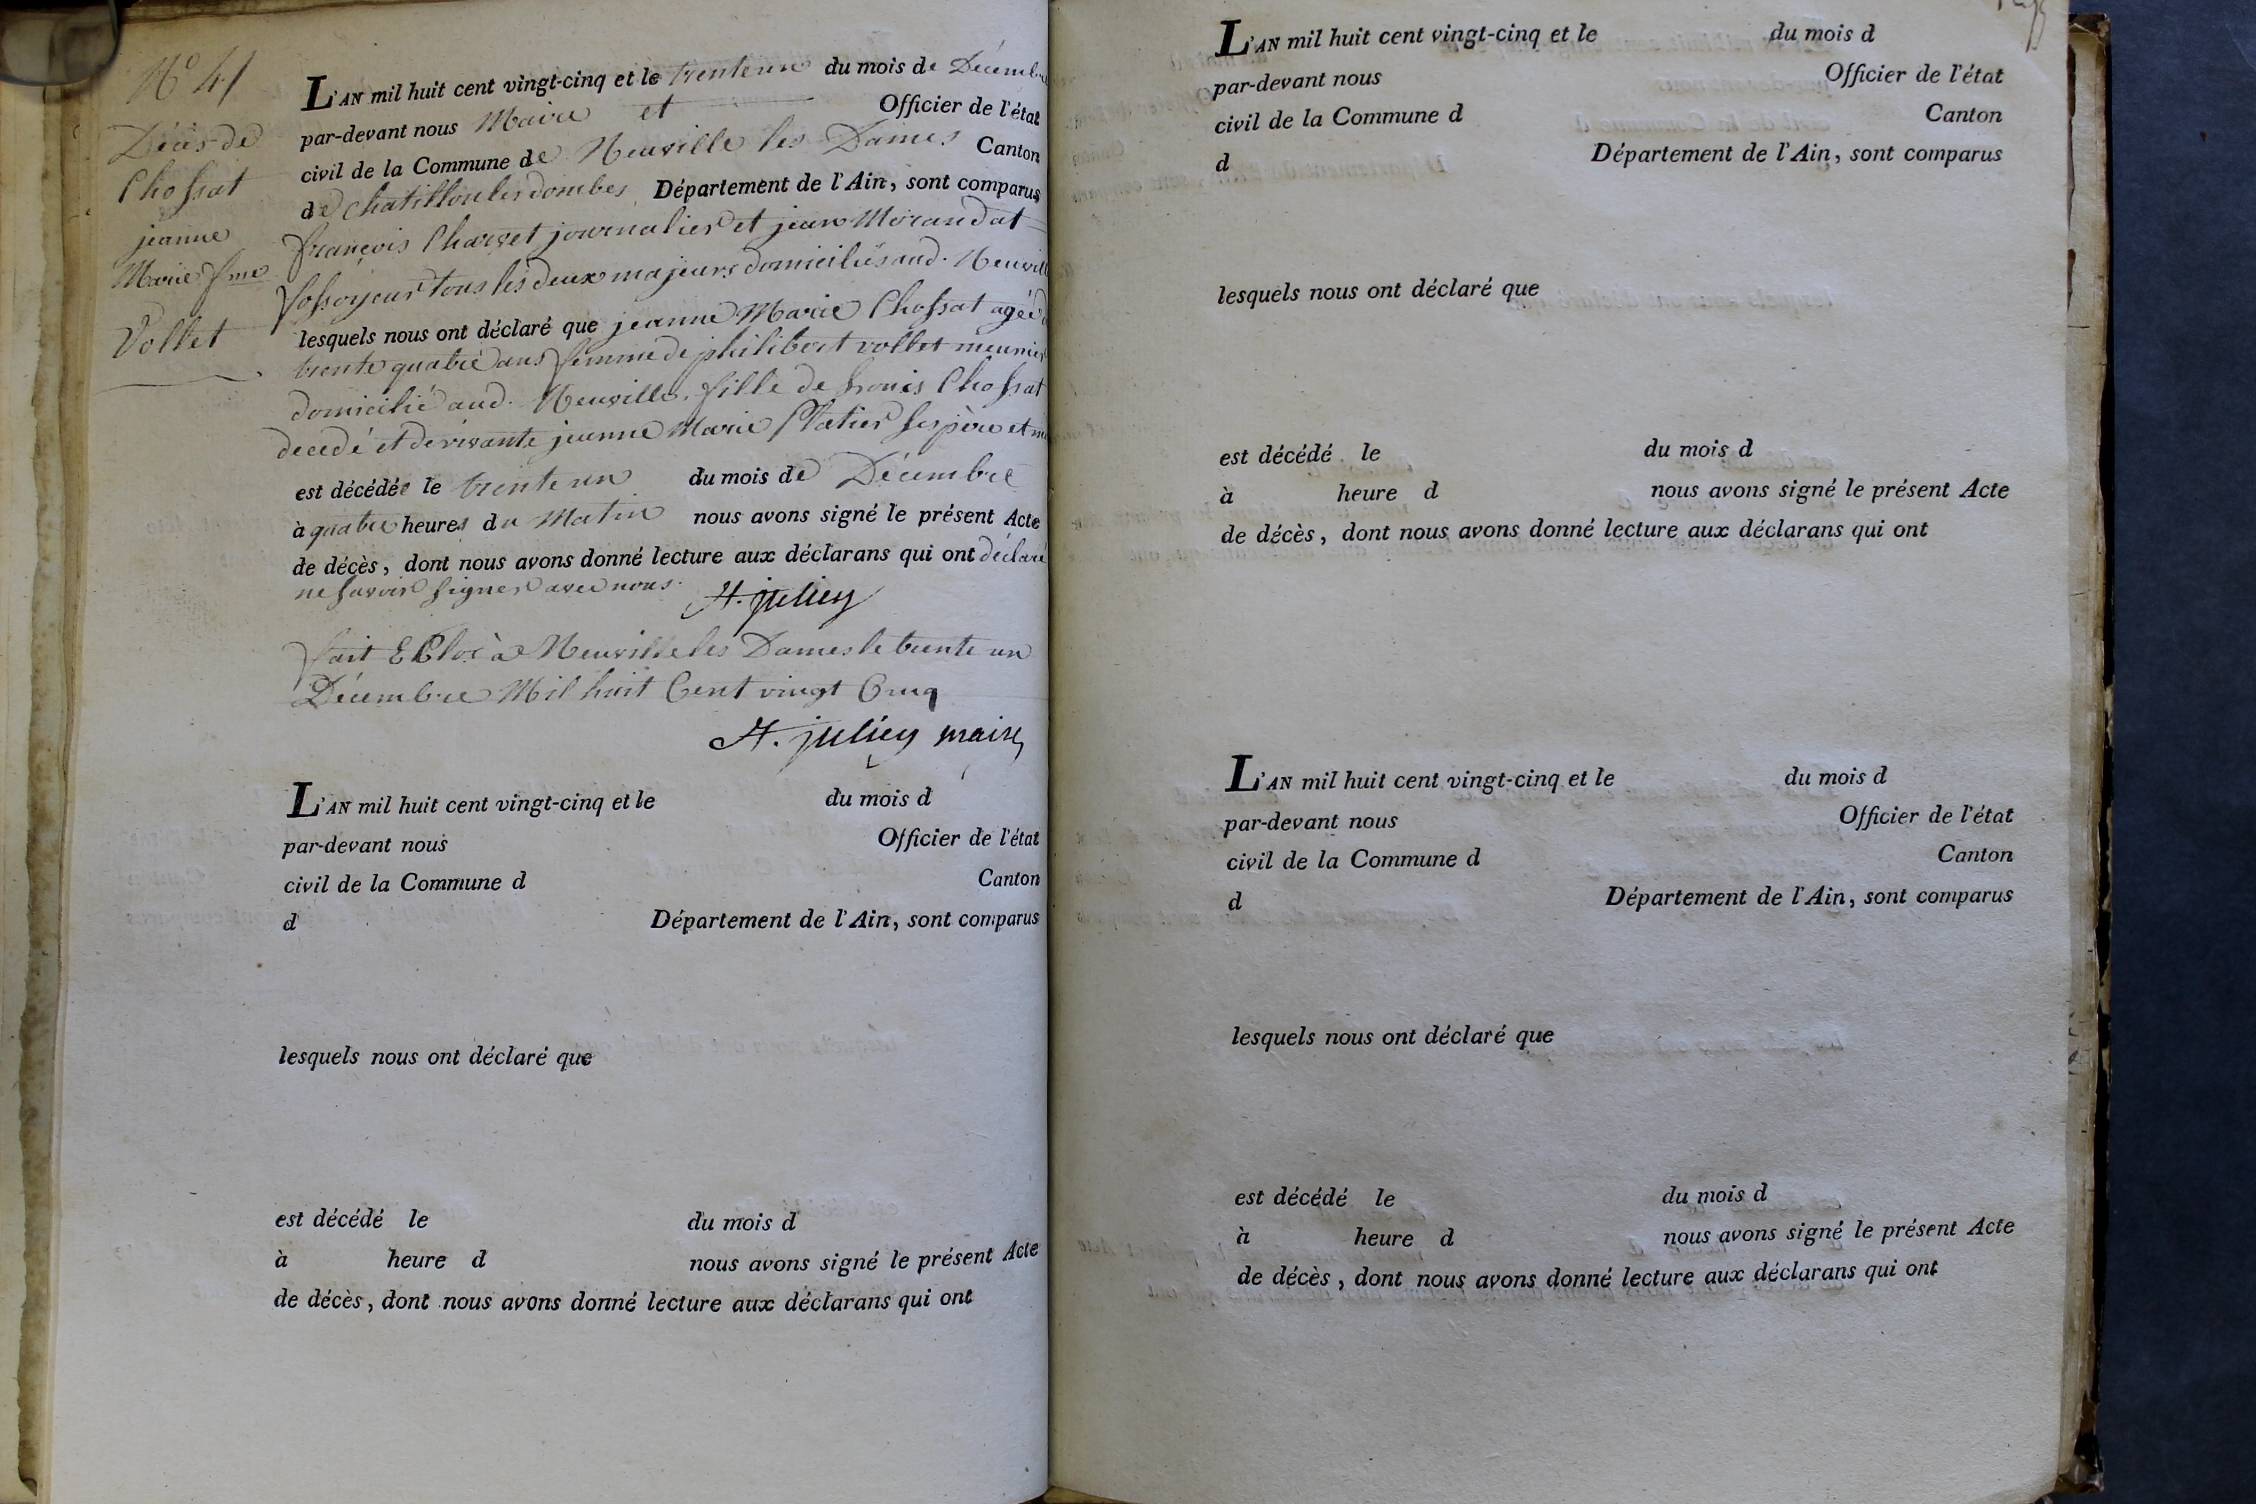 N° 41
Décès de
Chossat
jeanne
Marie fme
Vollet
L'AN mil huit cent vingt-cinq et le trente un du mois de Décembre
par-devant nous Maire et Officier de l'état
civil de la Commune de Neuville les Dames Canton
de chatillon les dombes Département de l'Ain, sont comparus
françois Charvet journalier et jean Morandat
fossoyeur tous les deux majeurs domiciliés aud. Neuville
lesquels nous ont déclaré que jeanne Marie Chossat agée d
trente quatre ans femme de philibert vollet meunier
domicilié aud. Neuville, fille de Louis Chossat
decedé et de vivante jeanne Marie Platier ses père et m
est décédée le trente un du mois de Décembre
à quatre heures du Matin nous avons signé le présent Acte
de décès, dont nous avons donné lecture aux déclarans qui ont déclaré
ne savoir signer avec nous.
H. julien
fait & Clos à Neuville les Dames le trente un
Décembre Mil huit Cent vingt Cinq
H. julien maire
L'AN mil huit cent vingt-cinq et le du mois d
par-devant nous Officier de l'état
civil de la Commune d Canton
d Département de l'Ain, sont comparus
lesquels nous ont déclaré que
est décédé le du mois d
à heure d nous avons signé le présent Acte
de décès, dont nous avons donné lecture aux déclarans qui ont
L'AN mil huit cent vingt-cinq et le du mois d
par-devant nous Officier de l'état
civil de la Commune d Canton
d Département de l'Ain, sont comparus
lesquels nous ont déclaré que
est décédé le du mois d
à heure d nous avons signé le présent Acte
de décès, dont nous avons donné lecture aux déclarans qui ont
L'AN mil huit cent vingt-cinq et le du mois d
par-devant nous Officier de l'état
civil de la Commune d Canton
d Département de l'Ain, sont comparus
lesquels nous ont déclaré que
est décédé le du mois d
à heure d nous avons signé le présent Acte
de décès, dont nous avons donné lecture aux déclarans qui ont